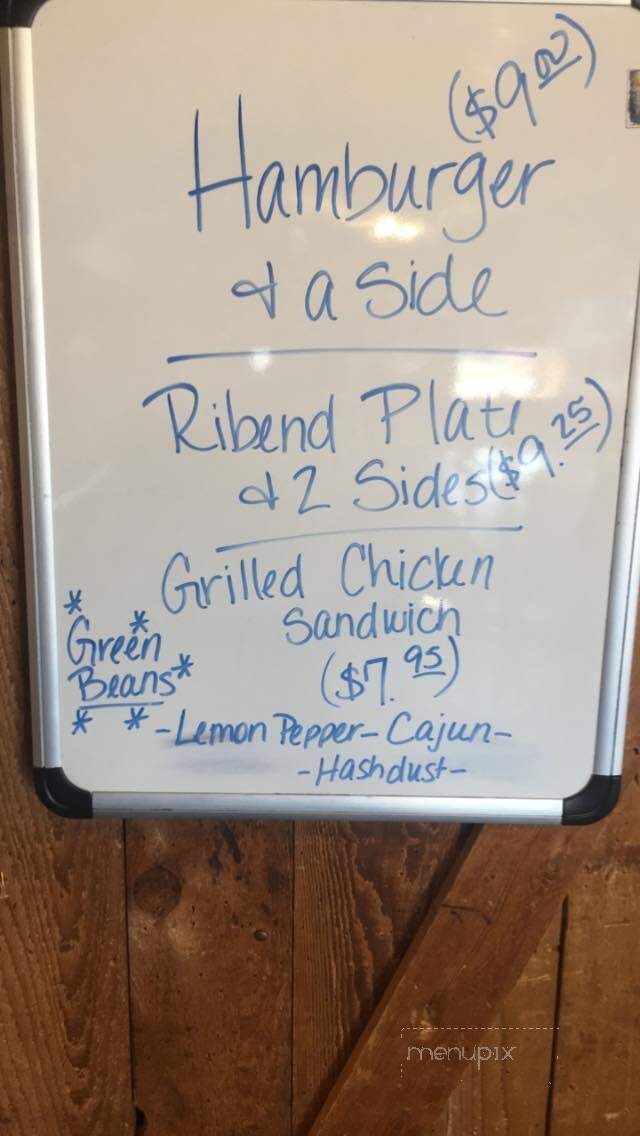 ($9.00)
Hamburger
& a Side
Ribend Plate
& 2 Sides ($9.25)
Grilled Chicken
Sandwich
($7.95)
* Green * Beans *
* *
-Lemon Pepper- Cajun-
-Hashdust-
menupix